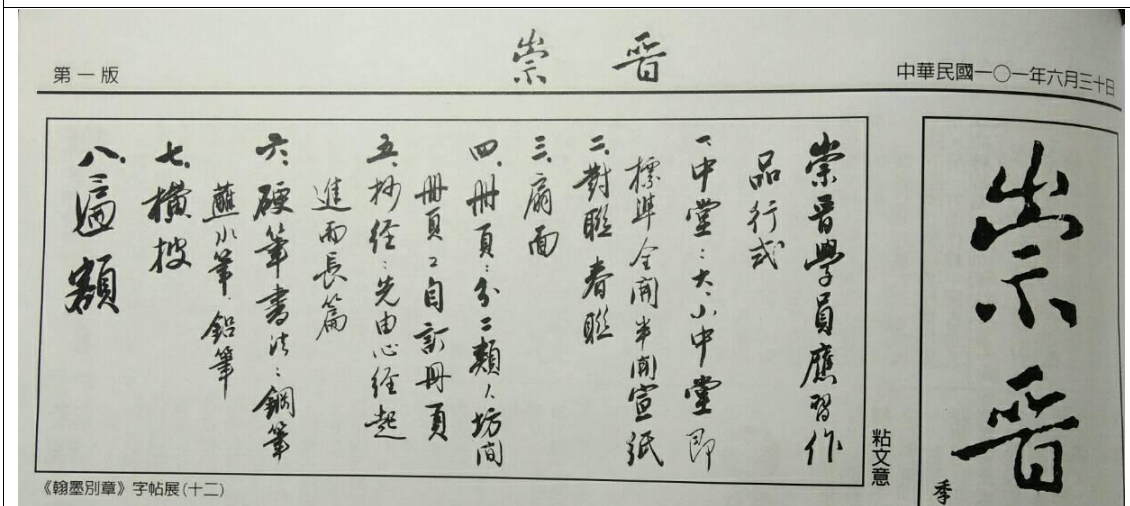 第一版
崇晉
中華民國一〇一年六月三十日
崇晉學員應習作
品行式
一、中堂：大、小中堂即
標準全開半開宣紙
二、對聯春聯
三、扇面
四、冊頁：分二類1.坊間
冊頁2.自訂冊頁
五、抄経：先由心経起
進而長篇
六、硬筆書法：鋼筆
蘸水筆、鉛筆
七、橫披
八、匾額
粘文意
《翰墨別章》字帖展(十二)
崇晉
季